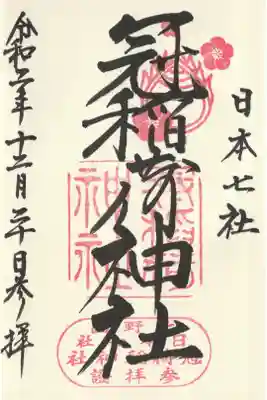 日本七社
冠稲荷神社
令和二年十二月二十日参拝